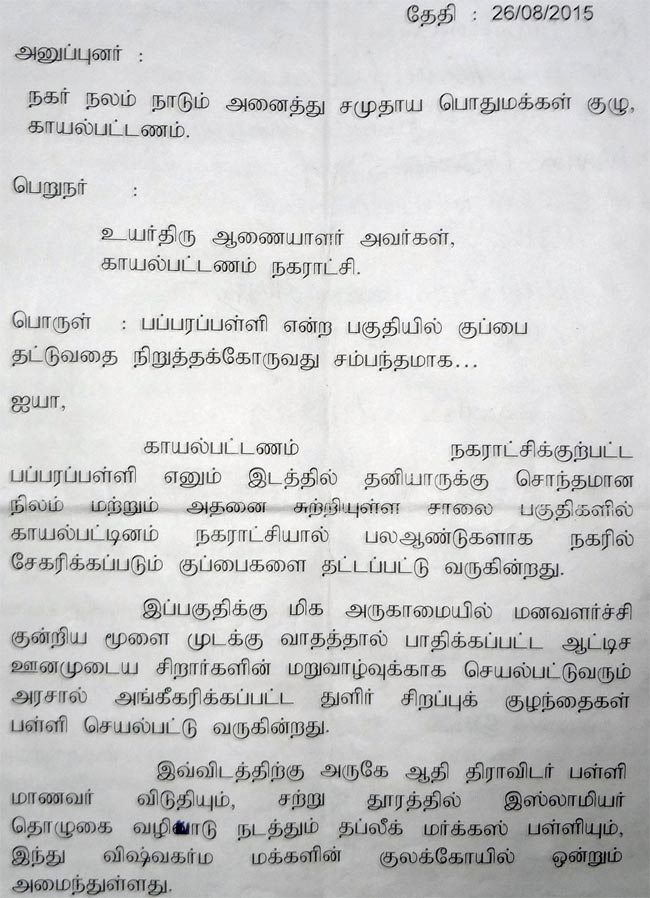 தேதி : 26/08/2015
அனுப்புனர் :
நகர் நலம் நாடும் அனைத்து சமுதாய பொதுமக்கள் குழு,
காயல்பட்டணம்.
பெறுநர் :
உயர்திரு ஆணையாளர் அவர்கள்,
காயல்பட்டணம் நகராட்சி.
பொருள் : பப்பரப்பள்ளி என்ற பகுதியில் குப்பை
தட்டுவதை நிறுத்தக்கோருவது சம்பந்தமாக...
ஐயா,
காயல்பட்டணம் நகராட்சிக்குற்பட்ட
பப்பரப்பள்ளி எனும் இடத்தில் தனியாருக்கு சொந்தமான
நிலம் மற்றும் அதனை சுற்றியுள்ள சாலை பகுதிகளில்
காயல்பட்டினம் நகராட்சியால் பலஆண்டுகளாக நகரில்
சேகரிக்கப்படும் குப்பைகளை தட்டப்பட்டு வருகின்றது.
இப்பகுதிக்கு மிக அருகாமையில் மனவளர்ச்சி
குன்றிய மூளை முடக்கு வாதத்தால் பாதிக்கப்பட்ட ஆட்டிச
ஊனமுடைய சிறார்களின் மறுவாழ்வுக்காக செயல்பட்டுவரும்
அரசால் அங்கீகரிக்கப்பட்ட துளிர் சிறப்புக் குழந்தைகள்
பள்ளி செயல்பட்டு வருகின்றது.
இவ்விடத்திற்கு அருகே ஆதி திராவிடர் பள்ளி
மாணவர் விடுதியும், சற்று தூரத்தில் இஸ்லாமியர்
தொழுகை வழிபாடு நடத்தும் தப்லீக் மர்க்கஸ் பள்ளியும்,
இந்து விஷ்வகர்ம மக்களின் குலக்கோயில் ஒன்றும்
அமைந்துள்ளது.